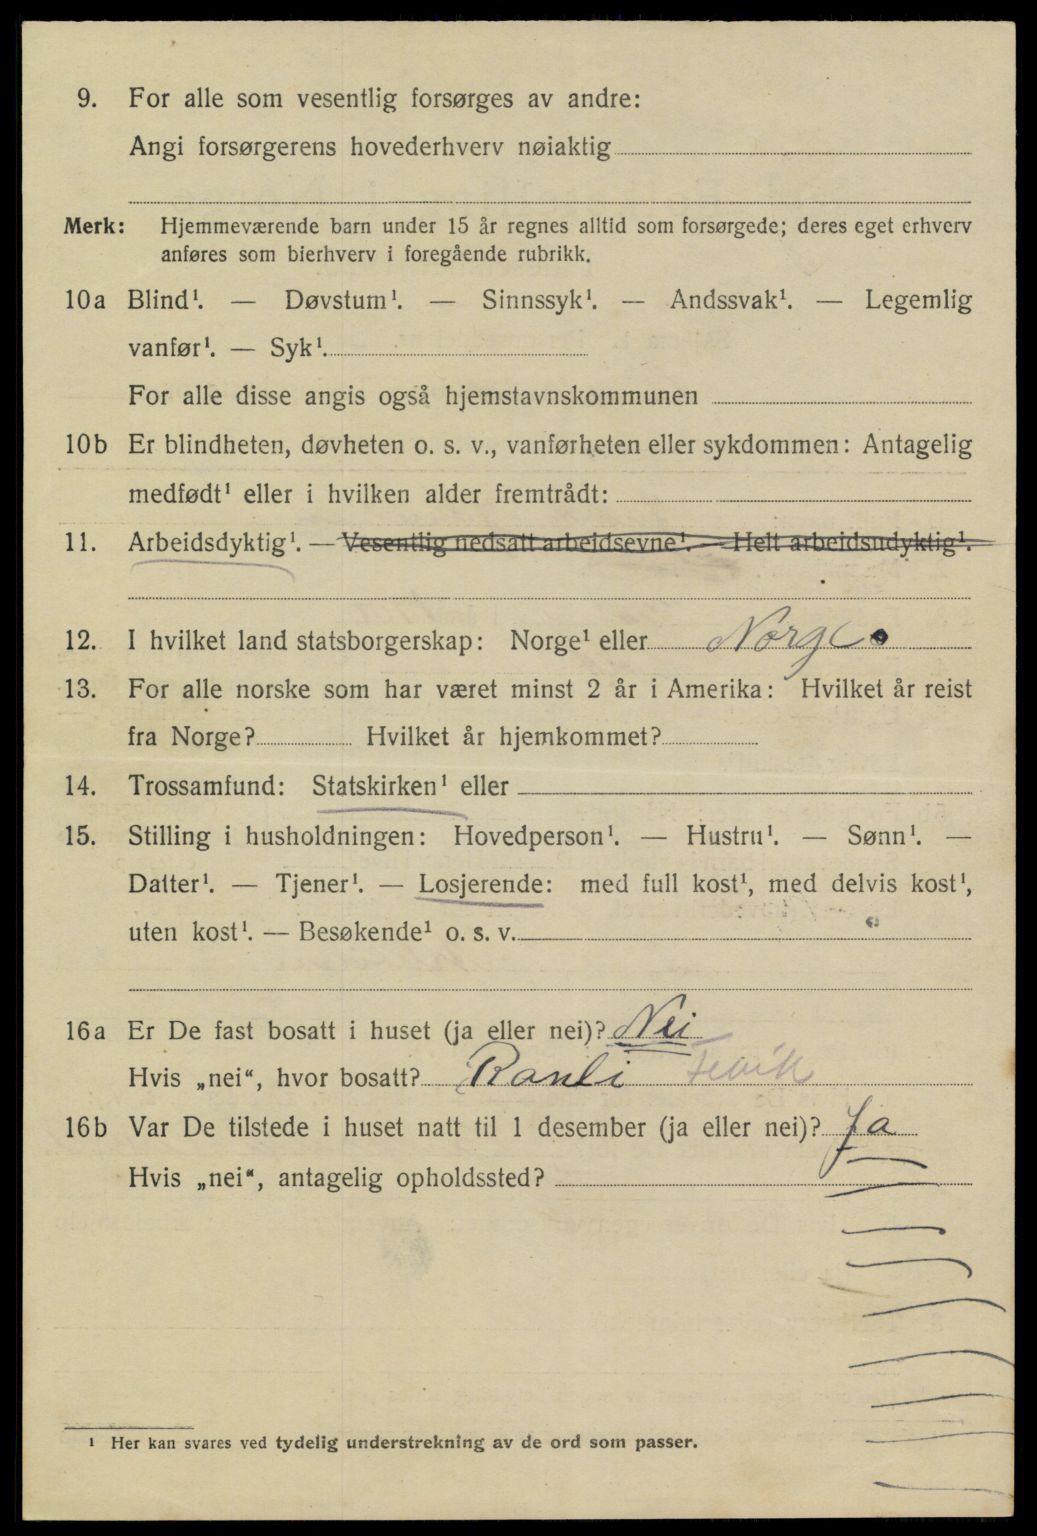 9. For alle som vesentlig forsørges av andre:
Angi forsørgerens hovederhverv nøiaktig
Merk: Hjemmeværende barn under 15 år regnes alltid som forsørgede; deres eget erhverv
anføres som bierhverv i foregående rubrikk.
10a Blind¹. — Døvstum¹. — Sinnssyk¹. — Andssvak¹. — Legemlig
vanfør¹. — Syk¹.
For alle disse angis også hjemstavnskommunen
10b Er blindheten, døvheten o. s. v., vanførheten eller sykdommen: Antagelig
medfødt¹ eller i hvilken alder fremtrådt:
11. Arbeidsdyktig¹. — Vesentlig nedsatt arbeidsevne¹. — Helt arbeidsudyktig¹.
12. I hvilket land statsborgerskap: Norge¹ eller Norge
13. For alle norske som har været minst 2 år i Amerika: Hvilket år reist
fra Norge? Hvilket år hjemkommet?
14. Trossamfund: Statskirken¹ eller
15. Stilling i husholdningen: Hovedperson¹. — Hustru¹. — Sønn¹. —
Datter¹. — Tjener¹. — Losjerende: med full kost¹, med delvis kost¹,
uten kost¹. — Besøkende¹ o. s. v.
16a Er De fast bosatt i huset (ja eller nei)? Nei
Hvis „nei“, hvor bosatt? Ranli Fevik
16b Var De tilstede i huset natt til 1 desember (ja eller nei)? Ja
Hvis „nei“, antagelig opholdssted?
¹ Her kan svares ved tydelig understrekning av de ord som passer.